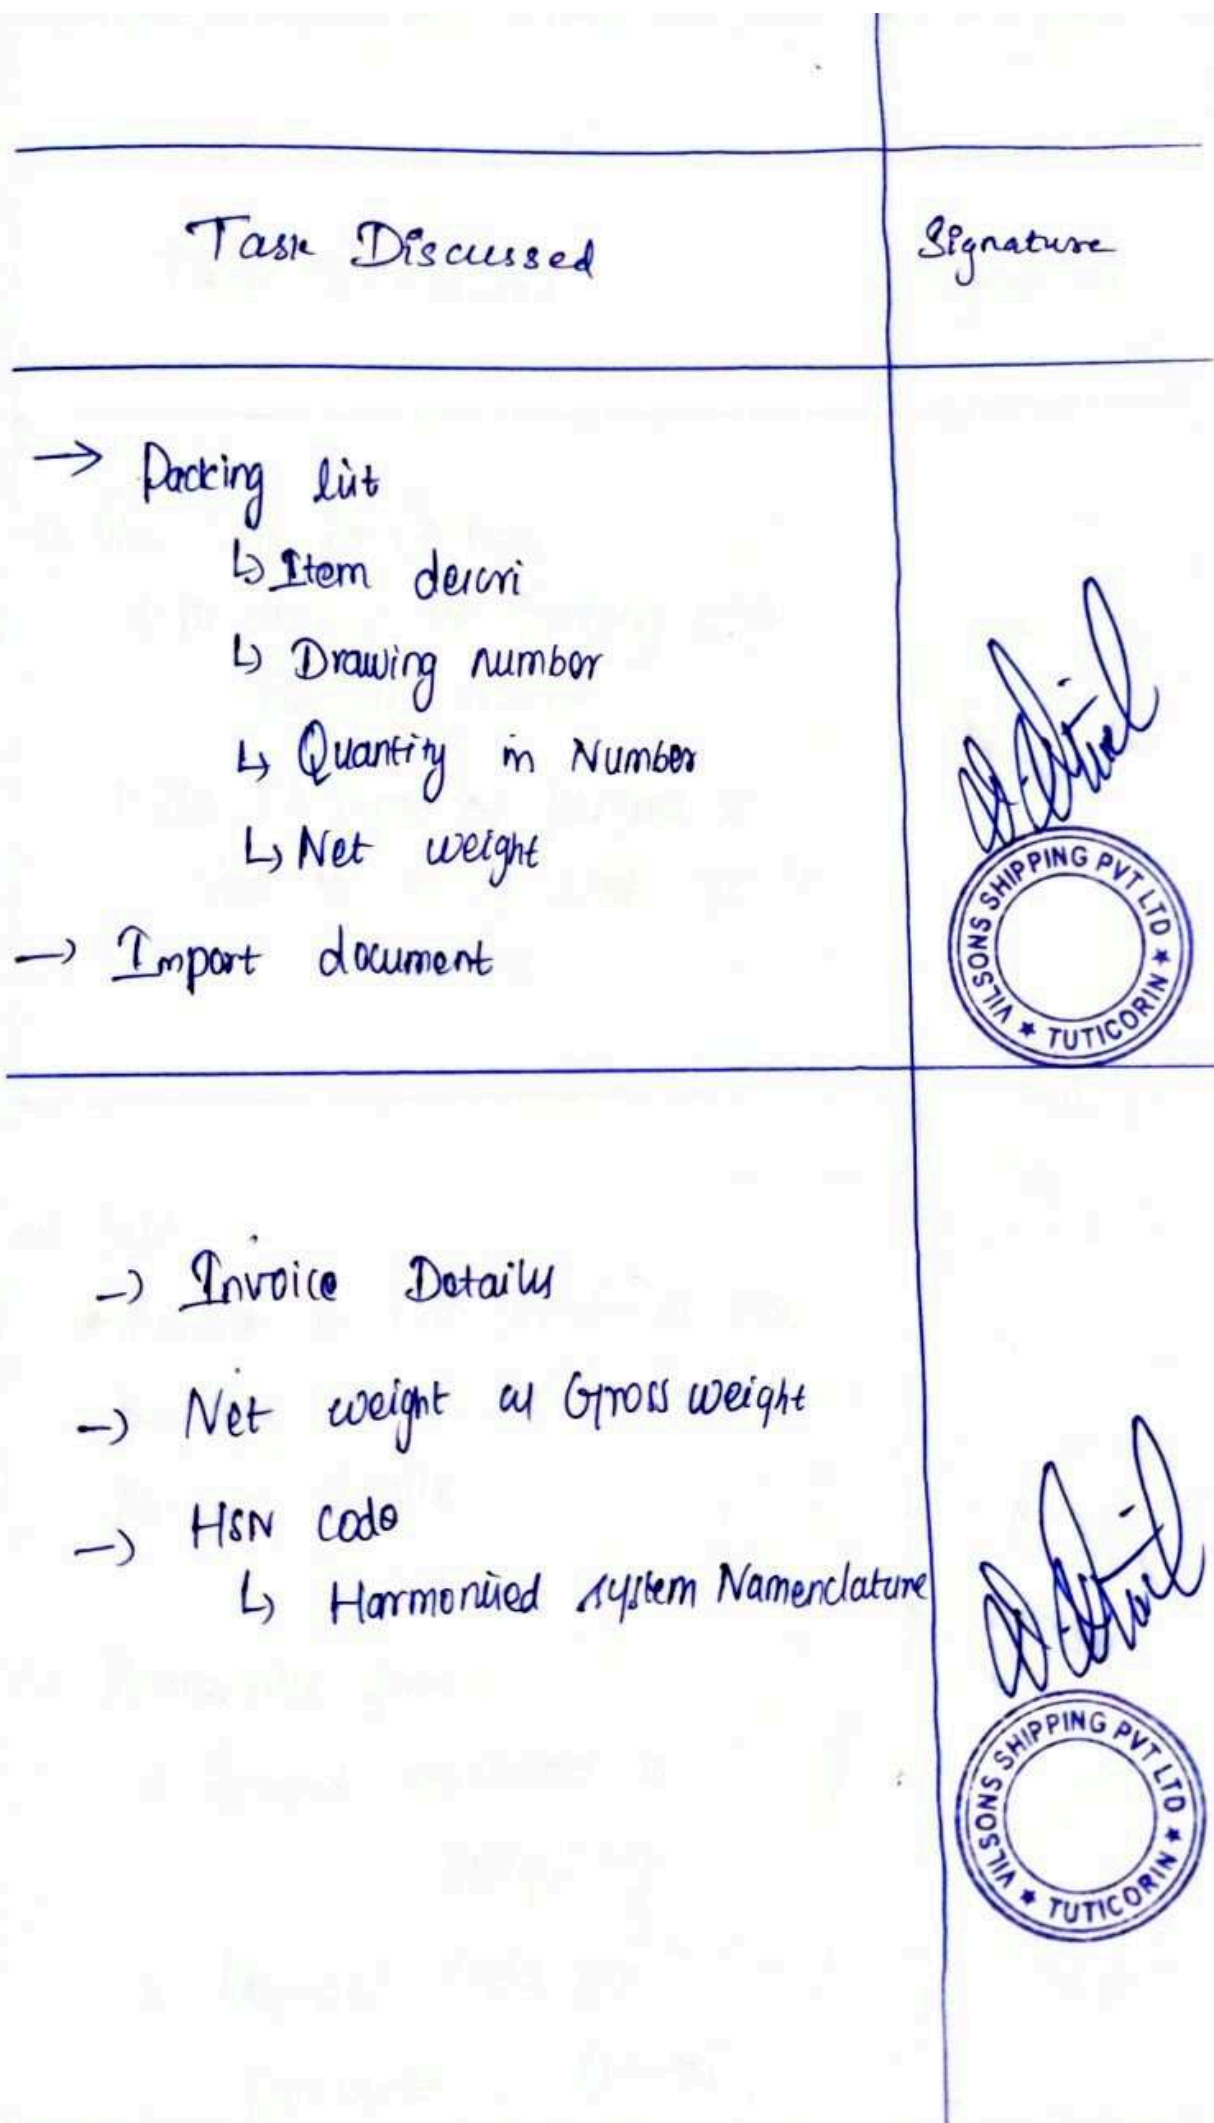 Task Discussed
Signature
→ Packing list
↳ Item descri
↳ Drawing number
↳ Quantity in Number
↳ Net weight
→ Import document
VILSONS SHIPPING PVT LTD ★ TUTICORIN ★
→ Invoice Details
→ Net weight as Gross weight
→ HSN Code
↳ Harmonised system Namenclature
VILSONS SHIPPING PVT LTD ★ TUTICORIN ★